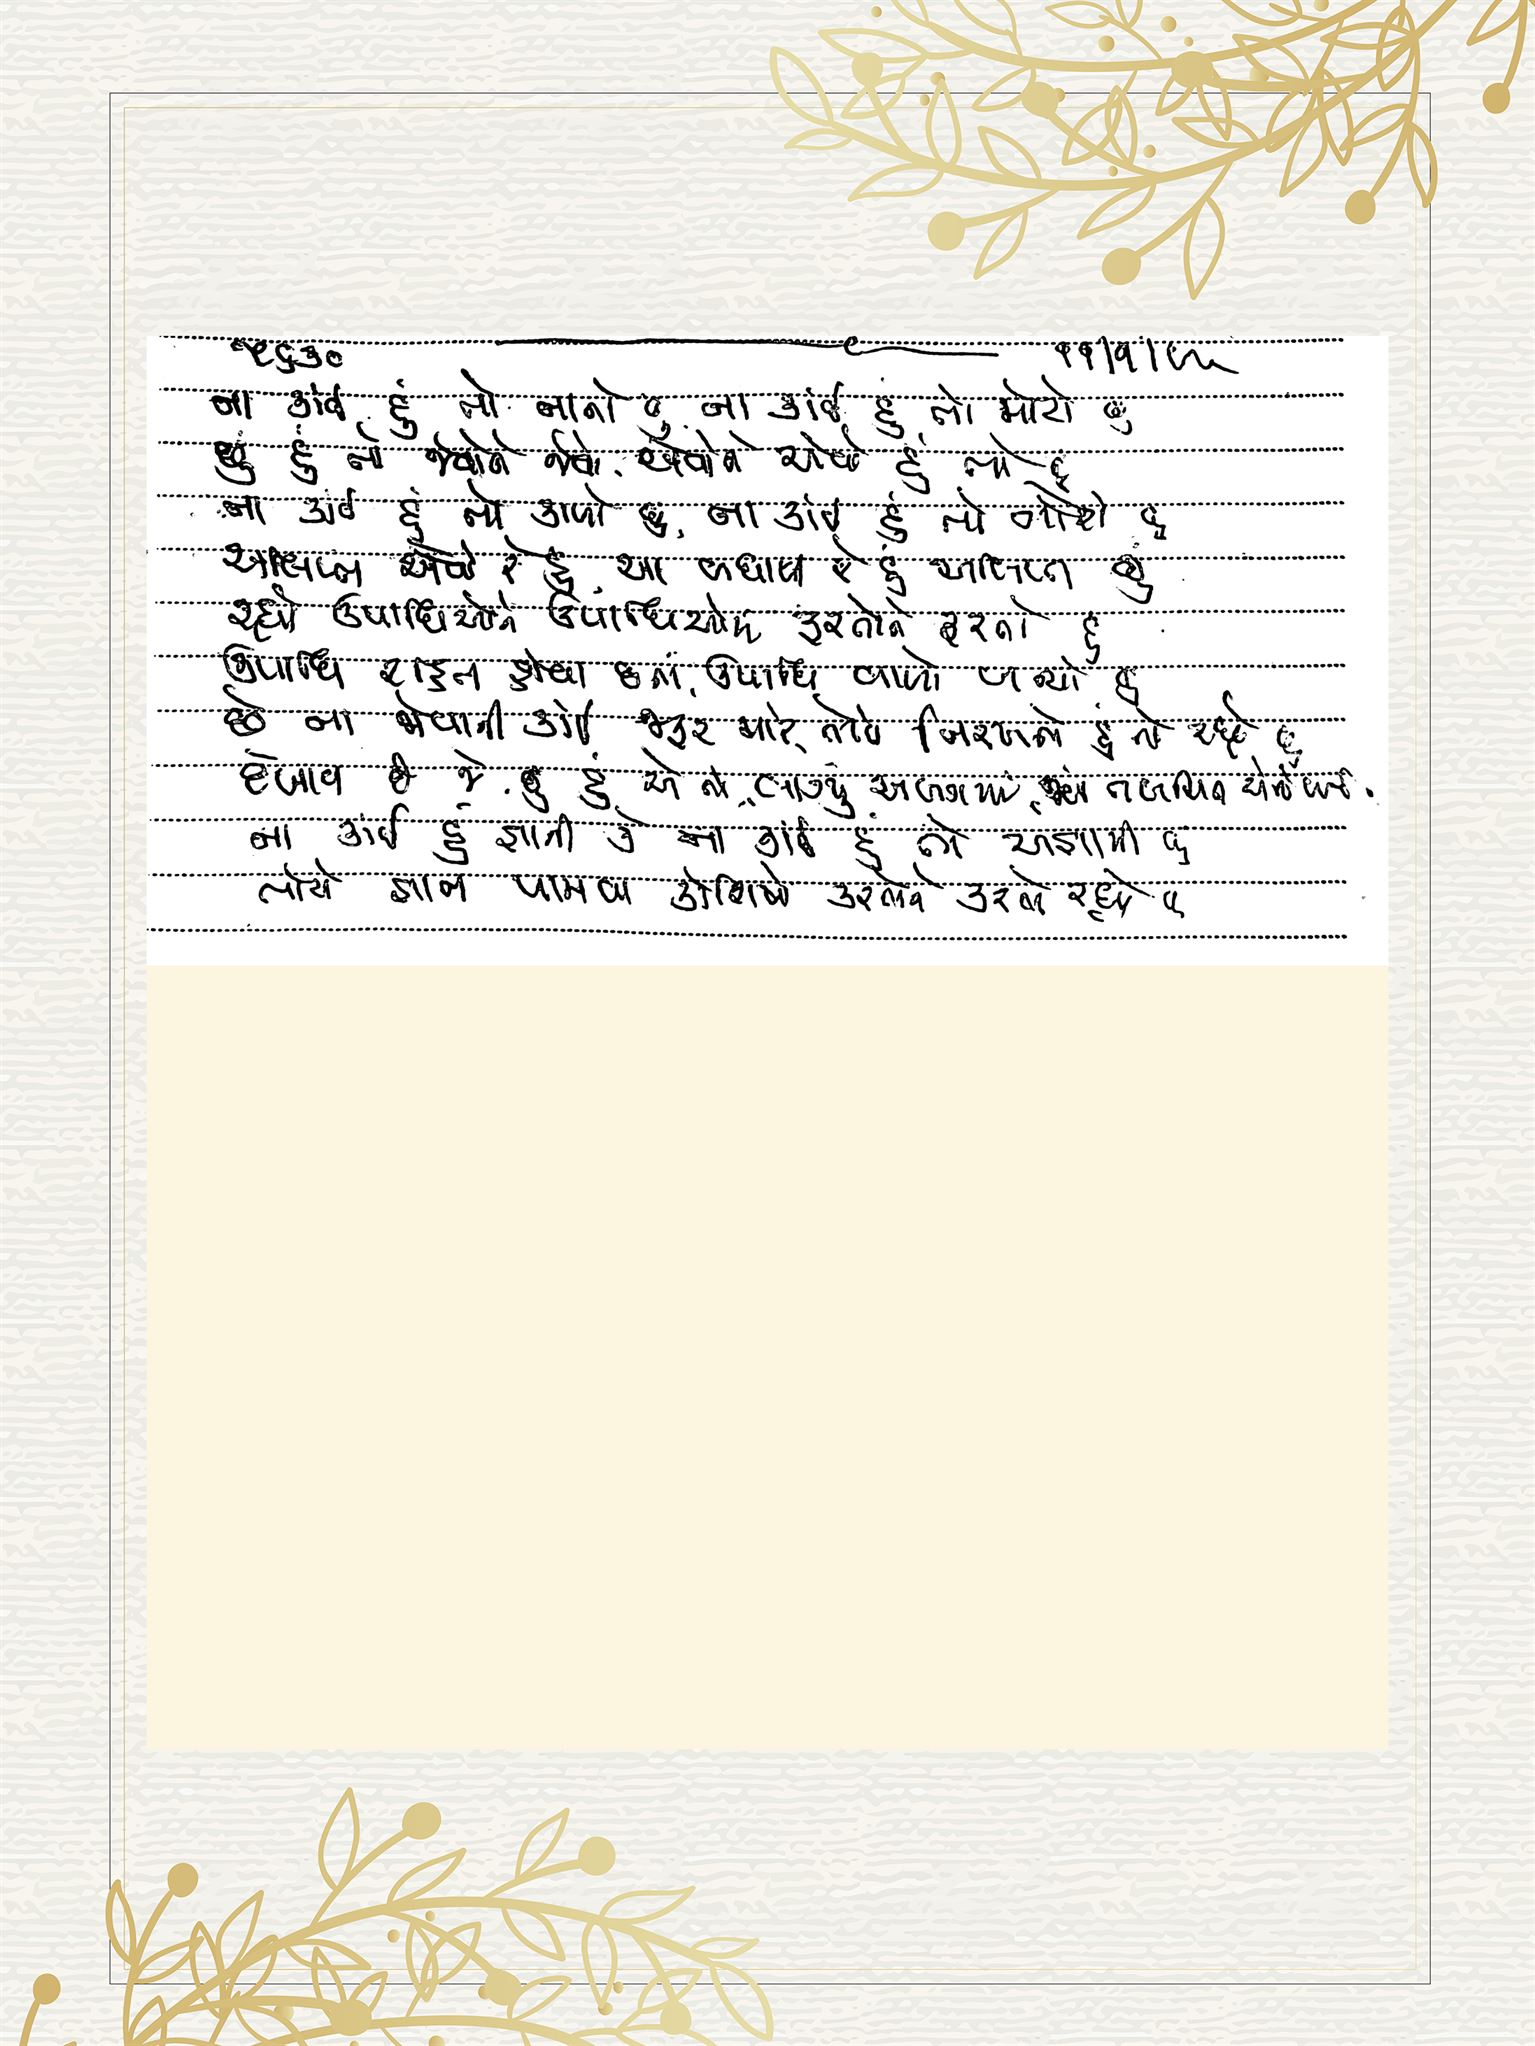 ૨૬૩૦ ૧૧/૧/
ના કાંઈ હું તો નાનો છું, ના કાંઈ હું તો મોટો છું
છું હું તો જેવોને જેવો, એવોને એવો હું તો છું
ના કાંઈ હું તો કાળો છું, ના કાંઈ હું તો ગોરો છું
અલિપ્ત એવો રે હું, આ બધાથી રે હું અલિપ્ત છું
રહ્યો ઉપાધિઓને ઉપાધિઓમાં ફરતોને ફરતો છું
ઉપાધિ રહિત હોવા છતાં, ઉપાધિ વાળો બન્યો છું
છે ના જોવાની કાંઈ જરૂર મારે, તોયે નિરખતો હું તો રહ્યો છું
દેખાવ છે જે છું હું એ તો, લાગ્યું અળગમાં,
ના કાંઈ હું જ્ઞાની કે ના કાંઈ હું તો અજ્ઞાની છું
તોયે જ્ઞાન પામવા કોશિશો કરતોને કરતો રહ્યો છું